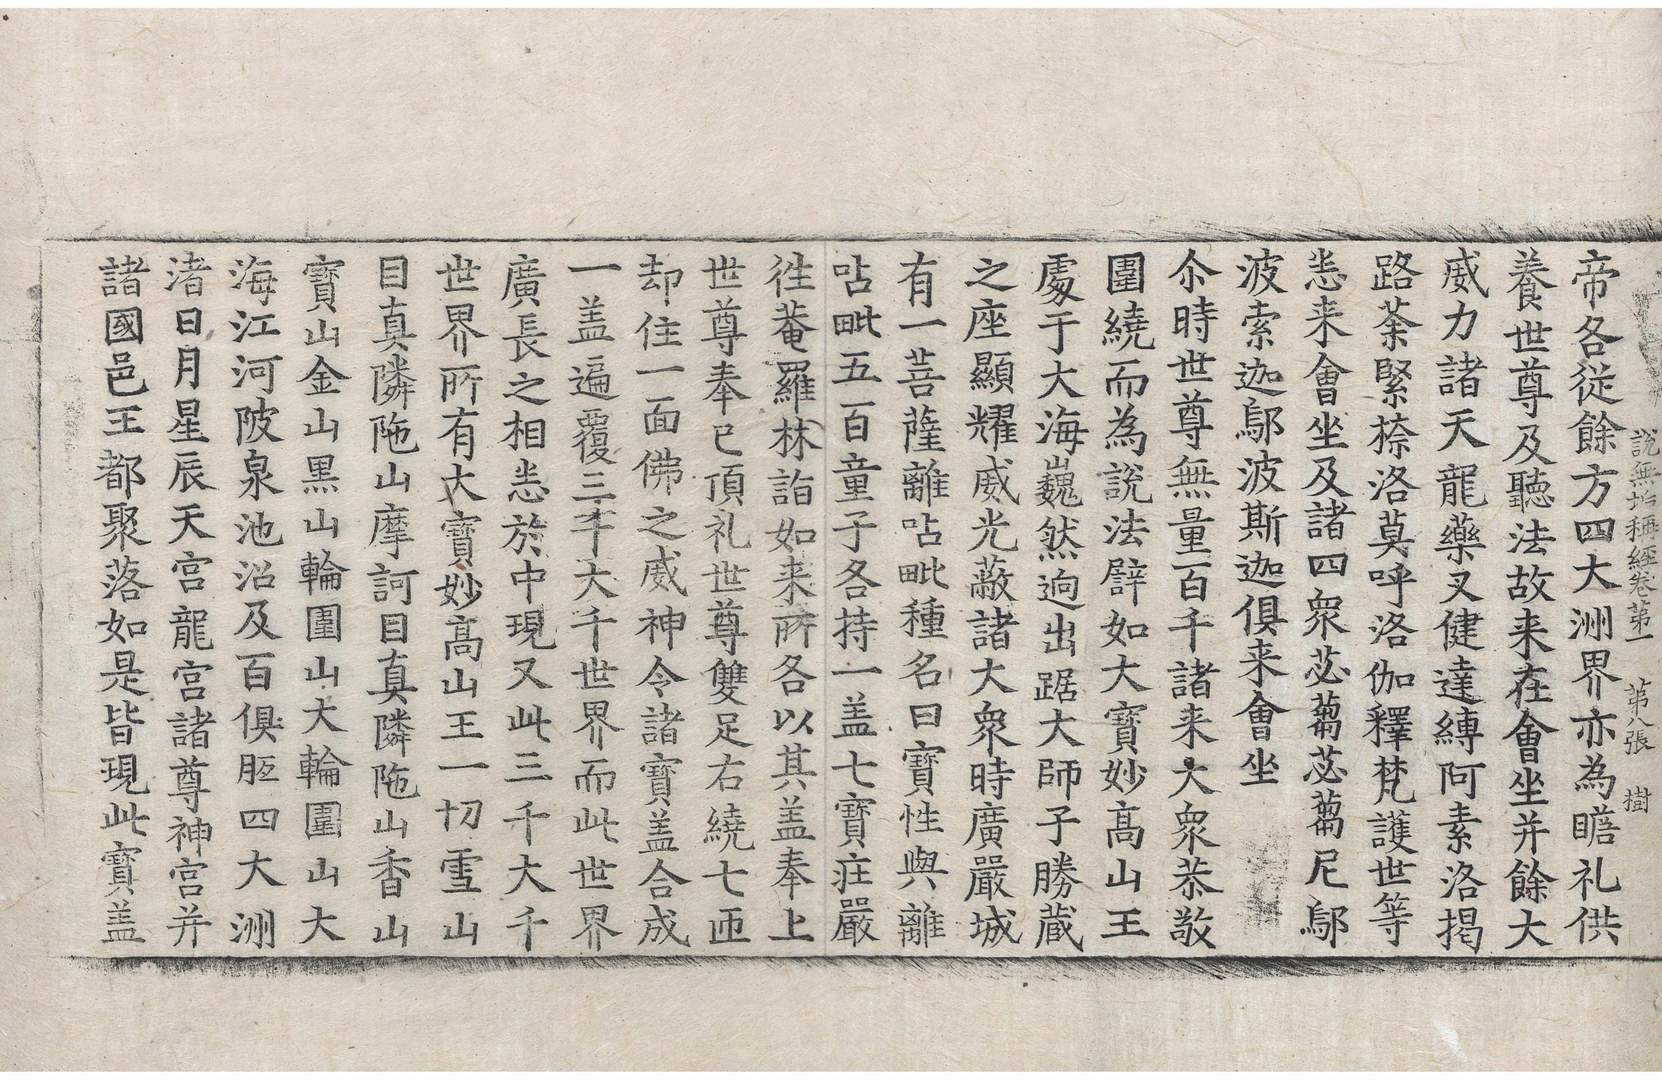 說無垢稱經卷第一　第八張　樹
帝各從餘方四大洲界亦為瞻礼供
養世尊及聽法故来在會坐并餘大
威力諸天龍藥叉健達縛阿素洛揭
路荼緊捺洛莫呼洛伽釋梵護世等
悉来會坐及諸四衆苾蒭苾蒭尼鄔
波索迦鄔波斯迦俱来會坐
尒時世尊無量百千諸来大衆恭敬
圍繞而為說法譬如大寶妙高山王
處于大海巍然逈出踞大師子勝蔵
之座顯耀威光蔽諸大衆時廣嚴城
有一菩薩離呫毗種名曰寶性與離
呫毗五百童子各持一盖七寶荘嚴
徃菴羅林詣如来所各以其盖奉上
世尊奉已頂礼世尊雙足右繞七匝
却住一面佛之威神令諸寶盖合成
一盖遍覆三千大千世界而此世界
廣長之相悉於中現又此三千大千
世界所有大寶妙高山王一切雪山
目真隣陁山摩訶目真隣陁山香山
寶山金山黒山輪圍山大輪圍山大
海江河陂泉池沼及百俱胝四大洲
渚日月星辰天宮龍宮諸尊神宮并
諸國邑王都聚落如是皆現此寶盖